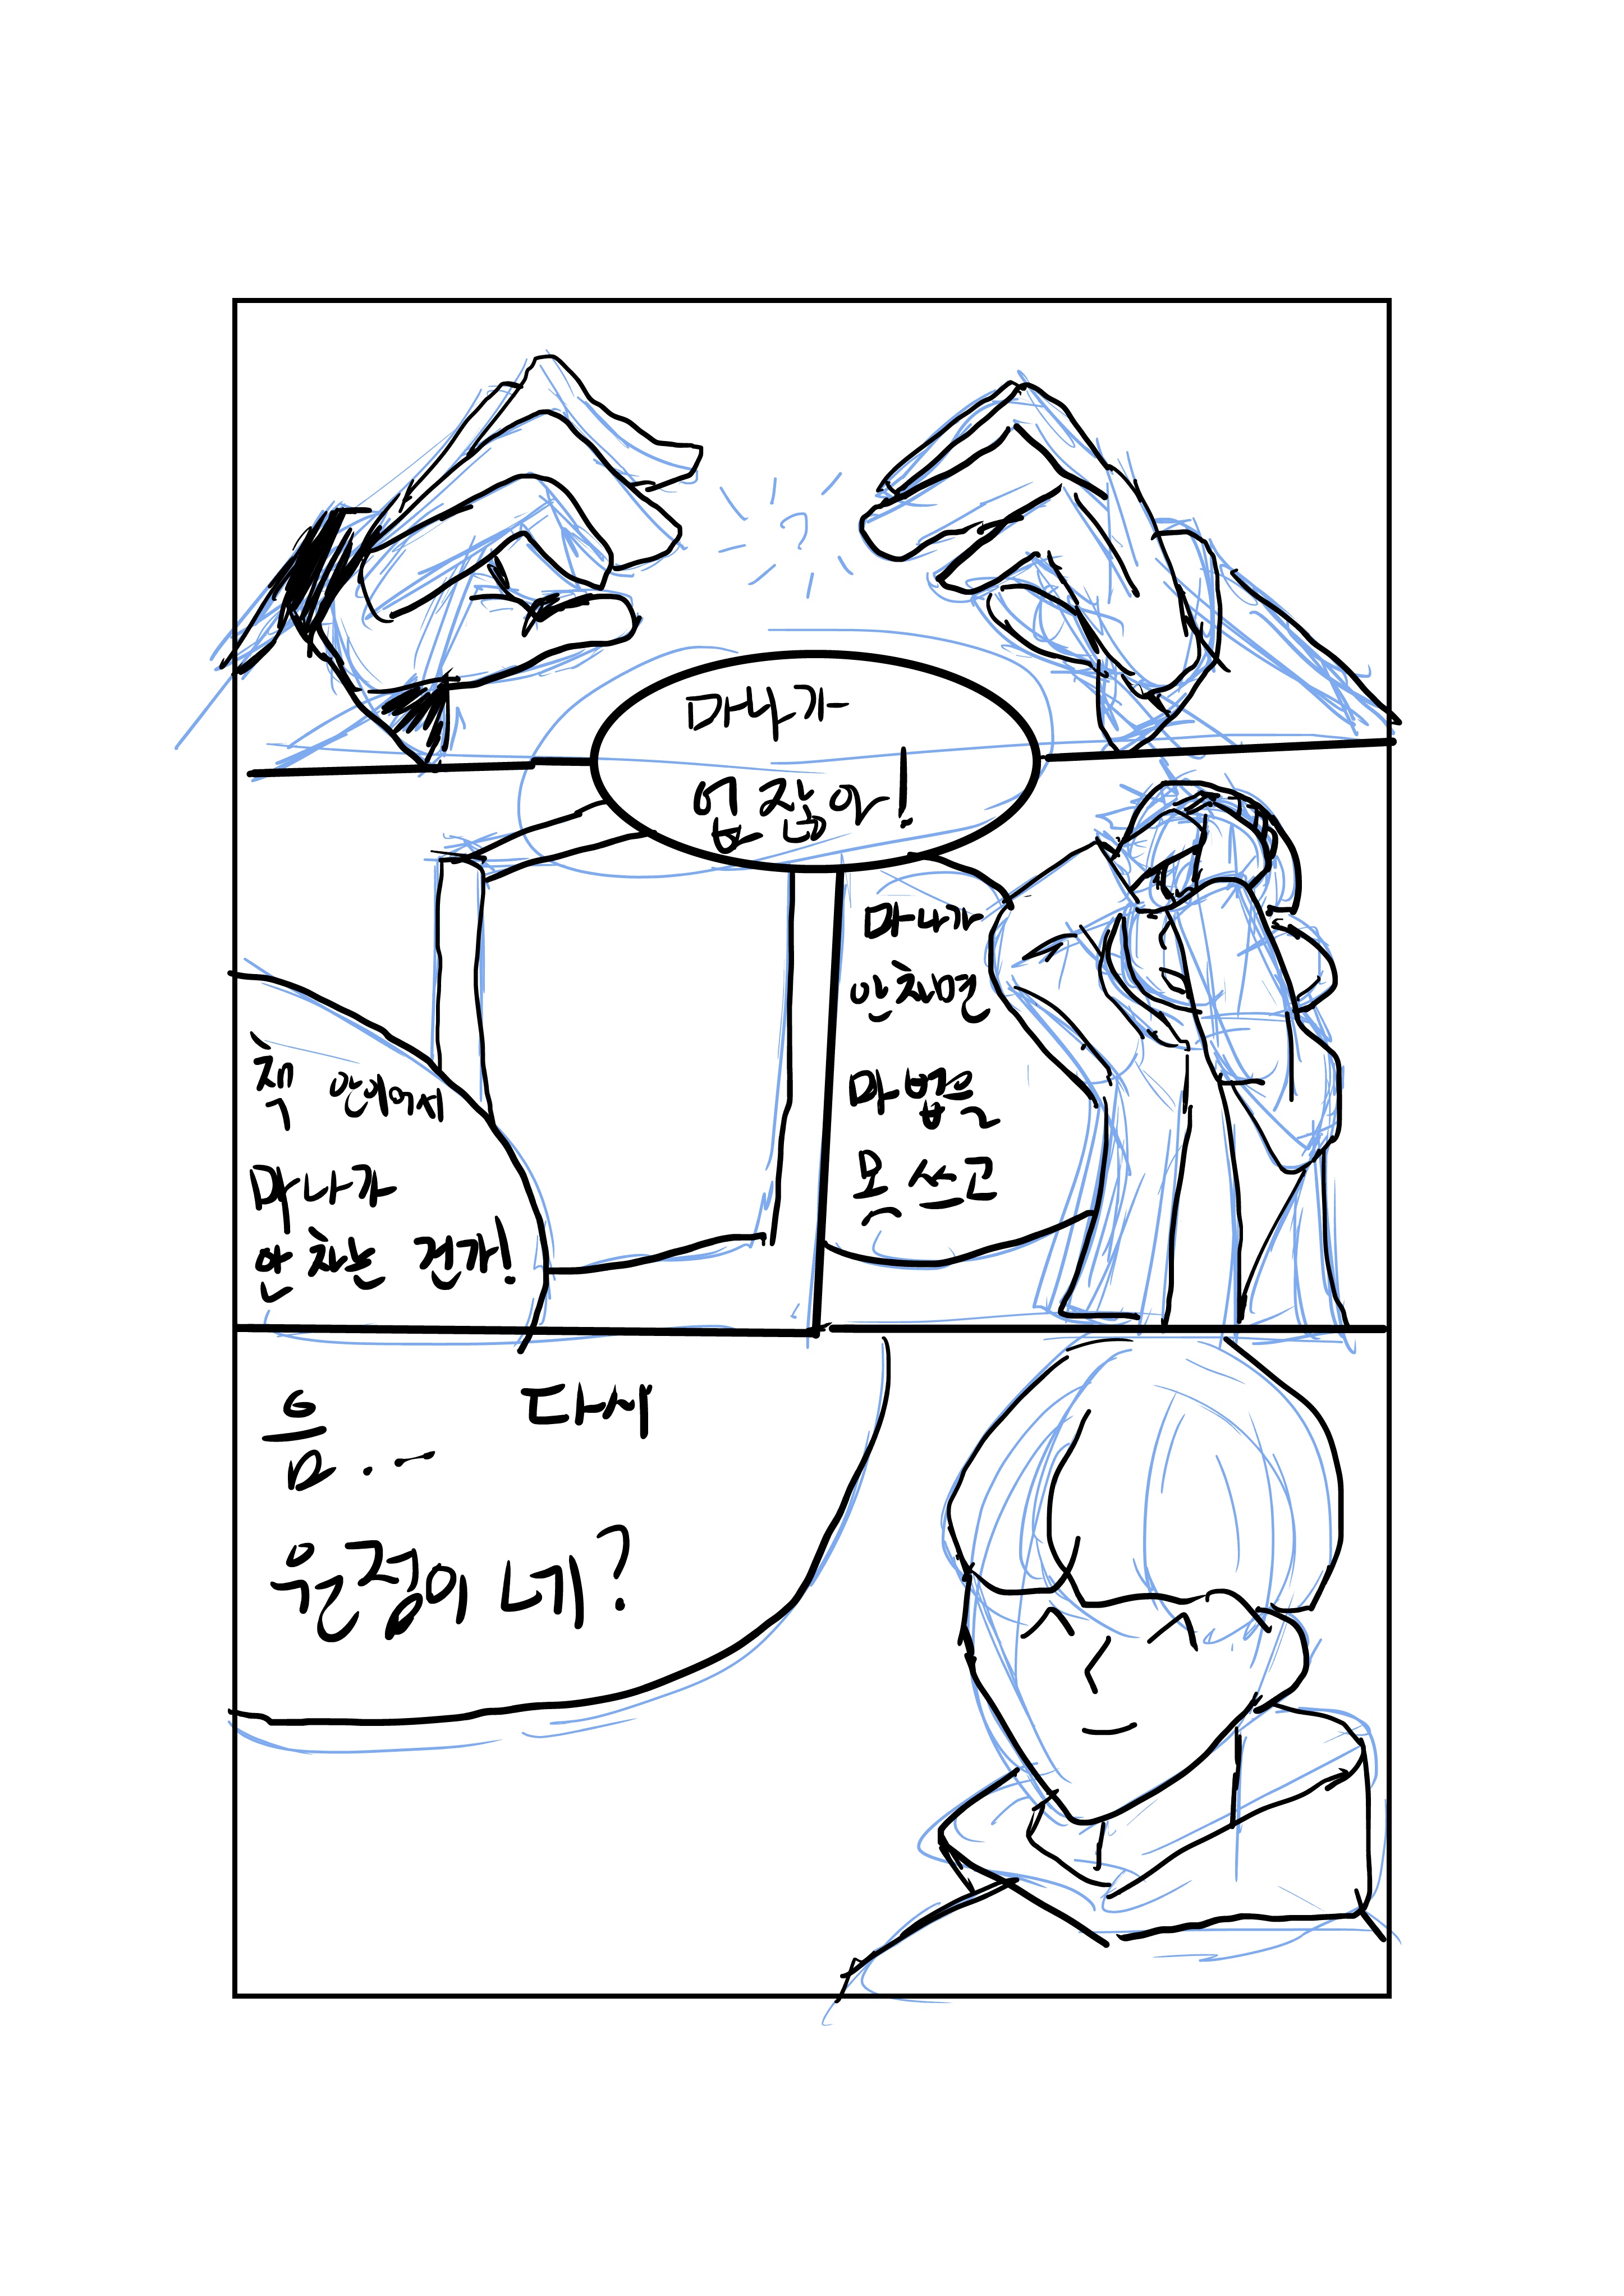 마나가
업잖아!
책 안에서
마나가
안 차는 건가!
마나가
안차면
마법을
못 쓰고
음... 다시
우정이네?